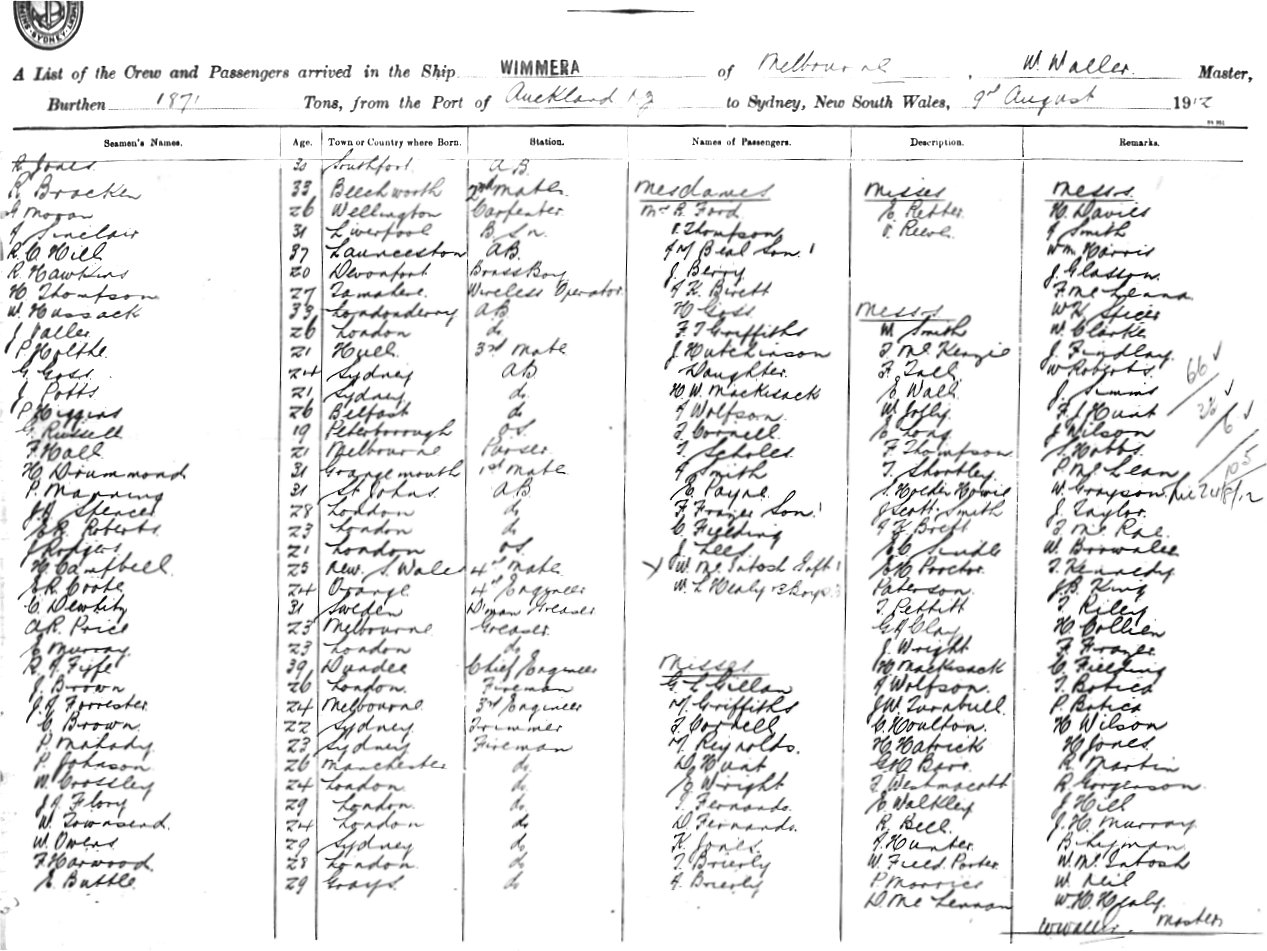 SYDNEY
A List of the Crew and Passengers arrived in the Ship WIMMERA of Melbourne, W. Waller Master,
Burthen 1871 Tons, from the Port of Auckland N.Z to Sydney, New South Wales, August 1912
Seamen's Names. Age. Town or Country where Born. Station. Names of Passengers. Description. Remarks.
R Jones 30 Southport A.B.
R Bracken 33 Beechworth 2nd Mate Mesdames Misses Messrs
26 Wellington Carpenter Mrs R. Ford E Retter H. Davies
A Sinclair 31 Liverpool B. Sn. Thompson Reeve A Smith
R. C. Hill 37 Launceston A.B. Beal Son 1 Wm Harris
R. Hawkins 20 Devonport Brass Boy J. Berry J. Glasson
H. Thompson 27 Wireless Operator A K. Birett
W. Hussack 33 Londonderry A.B. H Goss Messrs W K Spicer
26 London do F. T Griffiths W Smith W Clarke
P. Holthe 21 Hull 3rd Mate J. Hutchinson McKenzie J. Findlay
G Goss 24 Sydney A.B. Daughter F Tall W Roberts 66
J. Potts 21 Sydney do H. W. Mackisack E Wall J. Simms
P. Higgins 26 Belfast do A Wolfson W Jolly F. S Hunt
G. Russell 19 Peterborough O.S. T Cornell E Long J Wilson 6
F. Hall 21 Melbourne Purser T. Scholes F Thompson S Hobbs
H. Drummond 31 Grangemouth 1st Mate A Smith T. Shortley P. McLean 105
P. Manning 31 St Johns A.B. E Payne S Holder Howie W. Grayson 24/8/12
J. J. Spencer 28 London do F. Frazer Son 1 J Scott-Smith J. Taylor
E.R. Roberts 23 London do C Fielding A K Brett McRae
J Rodgers 21 London O.S. J. Lees E C Sindle W. Brownlee
H. Campbell 25 New. S. Wales 4th Mate W. McIntosh 1 E H Proctor T. Kennedy
E.R. Coote 24 Orange 4th Engineer W. L Healy Paterson J.B. King
C. Dewhity 31 Sweden D'man Greaser T. Pettitt T Riley
A.R. Price 23 Melbourne Greaser G A Clay H Collien
E Murray 23 London do J. Wright F Frazer
R. J. Fyfe 39 Dundee Chief Engineer Misses H Mackisack C Fielding
J. Brown 26 London Fireman G. L Gillan A Wolfson T Botica
J. J. Forrester 24 Melbourne 3rd Engineer M Griffiths J.W. Turnbull P Botica
C Brown 22 Sydney Trimmer T Cornell C Houlton H Wilson
P. Mahady 23 Sydney Fireman M Reynolds H Hatrick H Jones
P. Johnson 26 Manchester do D Hunt G.H Barr R Martin
W. Crossley 24 London do E Wright T Westmacott R Gorgenson
J. J. Flory 29 London do Fernands. E Walkley J Hill
W. Townsend 24 London do D Fernands. R Bell J. H. Murray
W. Owens 29 Sydney do K. Jones A Hunter B Lyman
F. Harwood 28 London do T Brierly W. Field. Porter W. McIntosh
E Buttle 29 Grays do A Brierly P Morrice W. Neil
D. McLennan W. H. Healy
W Waller Master